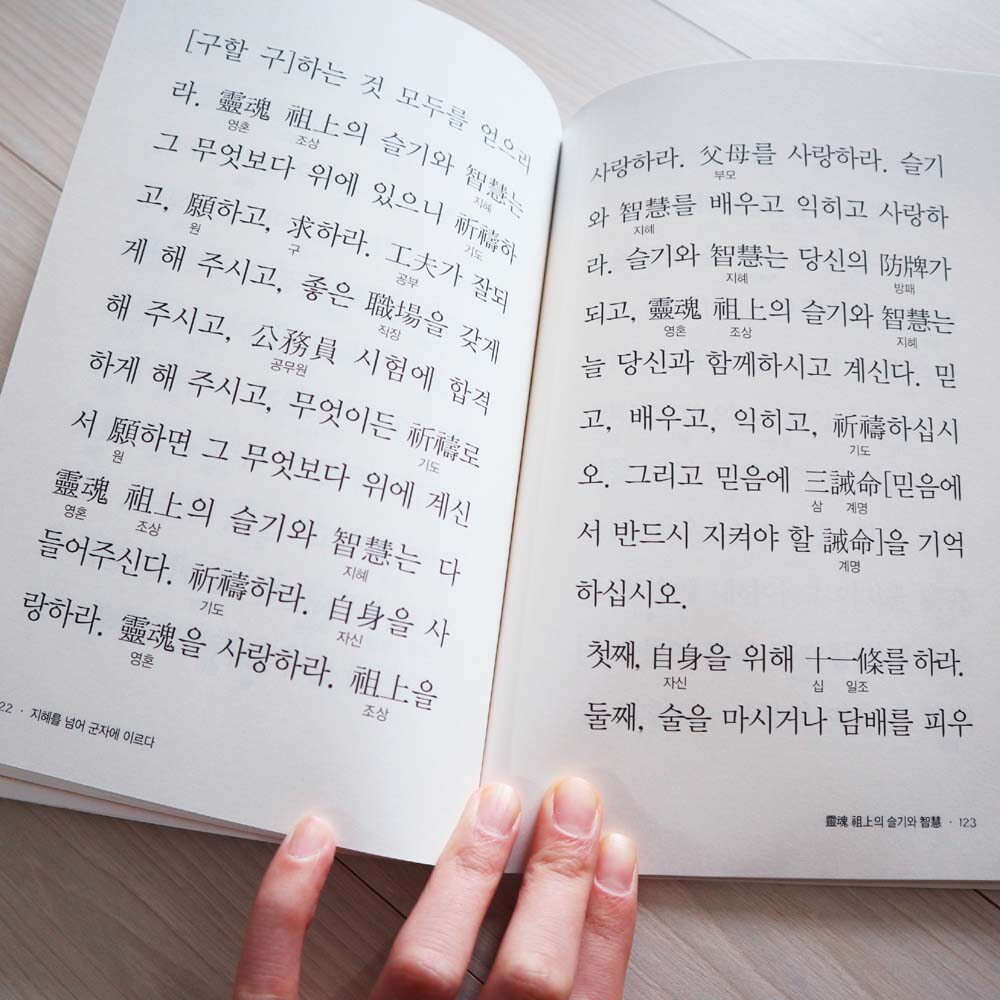 [구할 구]하는 것 모두를 얻으리
라. 靈魂 祖上의 슬기와 智慧는
영혼 조상 지혜
그 무엇보다 위에 있으니 祈禱하
기도
고, 願하고, 求하라. 工夫가 잘되
원 구 공부
게 해 주시고, 좋은 職場을 갖게
직장
해 주시고, 公務員 시험에 합격
공무원
하게 해 주시고, 무엇이든 祈禱로
기도
서 願하면 그 무엇보다 위에 계신
원
靈魂 祖上의 슬기와 智慧는 다
영혼 조상 지혜
들어주신다. 祈禱하라. 自身을 사
기도 자신
랑하라. 靈魂을 사랑하라. 祖上을
영혼 조상
22 · 지혜를 넘어 군자에 이르다
사랑하라. 父母를 사랑하라. 슬기
부모
와 智慧를 배우고 익히고 사랑하
지혜
라. 슬기와 智慧는 당신의 防牌가
지혜 방패
되고, 靈魂 祖上의 슬기와 智慧는
영혼 조상 지혜
늘 당신과 함께하시고 계신다. 믿
고, 배우고, 익히고, 祈禱하십시
기도
오. 그리고 믿음에 三誡命[믿음에
삼 계명
서 반드시 지켜야 할 誡命]을 기억
계명
하십시오.
첫째, 自身을 위해 十一條를 하라.
자신 십 일조
둘째, 술을 마시거나 담배를 피우
靈魂 祖上의 슬기와 智慧 · 123